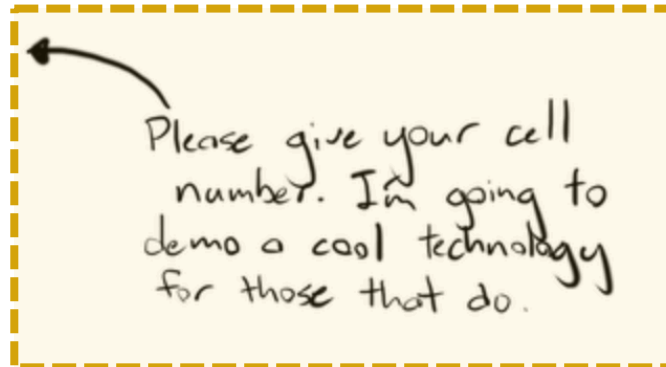 Please give your cell
number. I'm going to
demo a cool technology
for those that do.